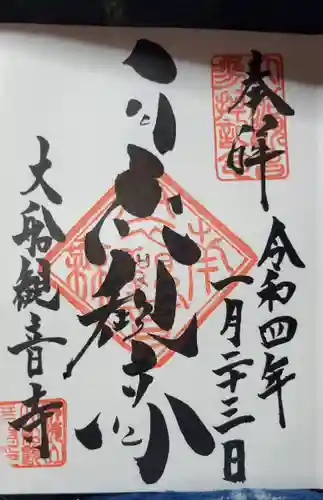 奉拝
令和四年
一月二十三日
白衣観音
大船観音寺